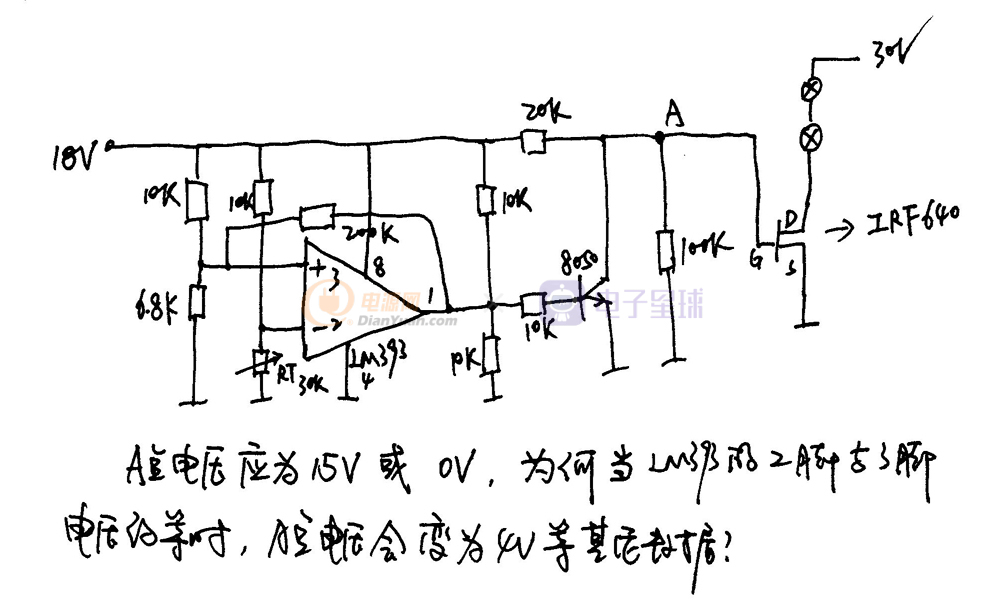 30V
20K
A
18V
10K
10K
200K
10K
8050
100K
D
G
S
IRF640
+
3
8
1
6.8K
-2
LM393
4
RT
30K
10K
10K
电源网
DianYuan.com
电子星球
A点电压应为15V或0V,为何当LM393的2脚与3脚
电压相等时,A点电压会变为4V等其它数据?